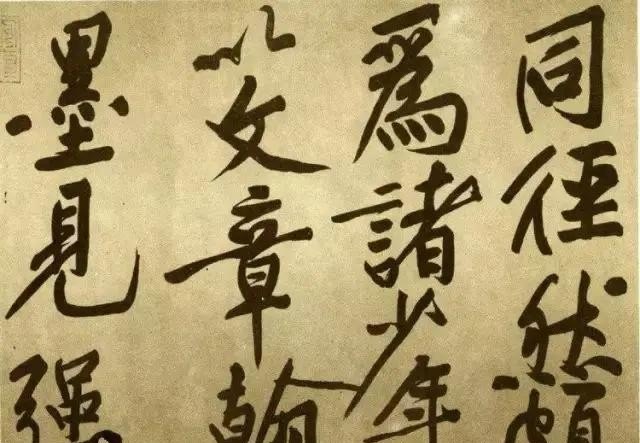 同径然頗
爲諸少年
以文章翰
墨見强